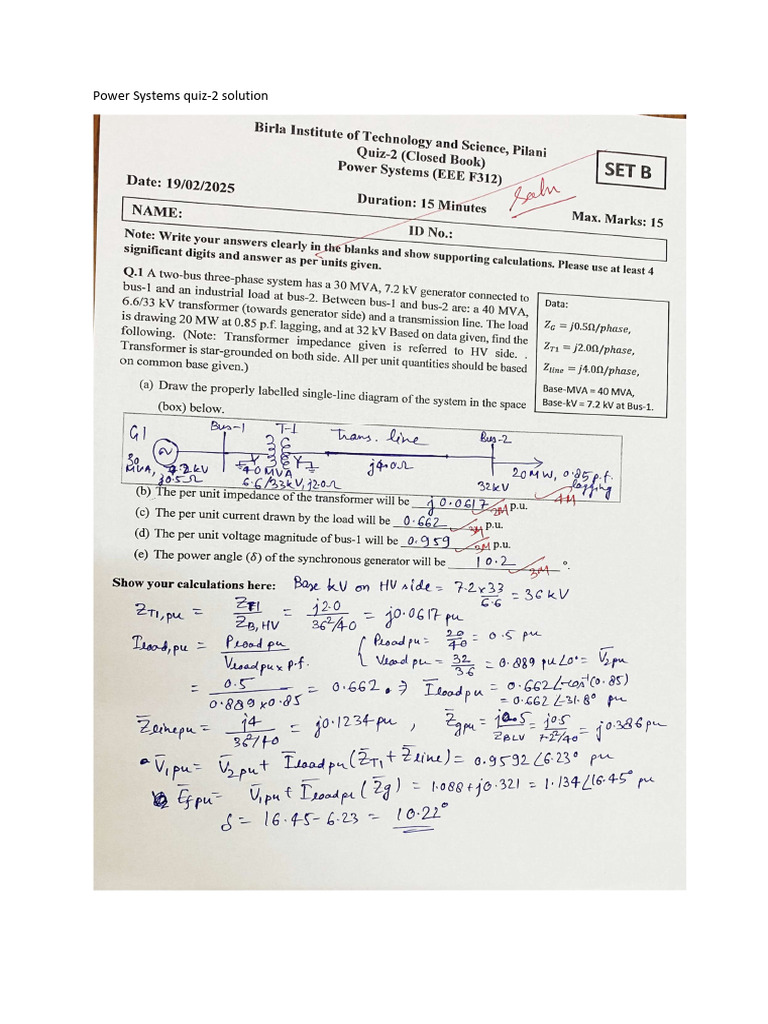 Power Systems quiz-2 solution
Birla Institute of Technology and Science, Pilani
Quiz-2 (Closed Book)
Power Systems (EEE F312)
SET B
Date: 19/02/2025
Duration: 15 Minutes
Max. Marks: 15
NAME:
ID No.:
Note: Write your answers clearly in the blanks and show supporting calculations. Please use at least 4
significant digits and answer as per units given.
Q.1 A two-bus three-phase system has a 30 MVA, 7.2 kV generator connected to
bus-1 and an industrial load at bus-2. Between bus-1 and bus-2 are: a 40 MVA,
6.6/33 kV transformer (towards generator side) and a transmission line. The load
is drawing 20 MW at 0.85 p.f. lagging, and at 32 kV Based on data given, find the
following. (Note: Transformer impedance given is referred to HV side. .
Transformer is star-grounded on both side. All per unit quantities should be based
on common base given.)
Data:
Z_G = j0.5Ω/phase,
Z_T1 = j2.0Ω/phase,
Z_line = j4.0Ω/phase,
Base-MVA = 40 MVA,
Base-kV = 7.2 kV at Bus-1.
(a) Draw the properly labelled single-line diagram of the system in the space
(box) below.
G1 Bus-1 T-1 trans. line Bus-2
30 MVA, 7.2 kV
j0.5Ω
40 MVA
6.6/33KV, j2.0Ω
j4.0Ω
32kV
20 MW, 0.85 p.f. lagging
4M
(b) The per unit impedance of the transformer will be j0.0617 p.u. 2M
(c) The per unit current drawn by the load will be 0.662 p.u. 3M
(d) The per unit voltage magnitude of bus-1 will be 0.959 p.u. 3M
(e) The power angle (δ) of the synchronous generator will be 10.2 °. 3M
Show your calculations here: Base kV on HV side = 7.2×33/6.6 = 36 kV
Z_T1,pu = Z_T1/Z_B,HV = j2.0/(36²/40) = j0.0617 pu
I_load,pu = P_load pu/(V_load pu × p.f.) { P_load pu = 20/40 = 0.5 pu
V_load pu = 32/36 = 0.889 pu∠0° = V̄_2pu
= 0.5/(0.889×0.85) = 0.662. ⇒ Ī_load pu = 0.662∠-cos⁻¹(0.85)
= 0.662∠-31.8° pu
Z̄_line pu = j4/(36²/40) = j0.1234 pu, Z̄_g pu = j0.5/Z_BLV = j0.5/(7.2²/40) = j0.386 pu
V̄_1 pu = V̄_2 pu + Ī_load pu (Z̄_T1 + Z̄_line) = 0.9592∠6.23° pu
Ē_f pu = V̄_1 pu + Ī_load pu (Z̄_g) = 1.088 + j0.321 = 1.134∠16.45° pu
δ = 16.45 - 6.23 = 10.22°